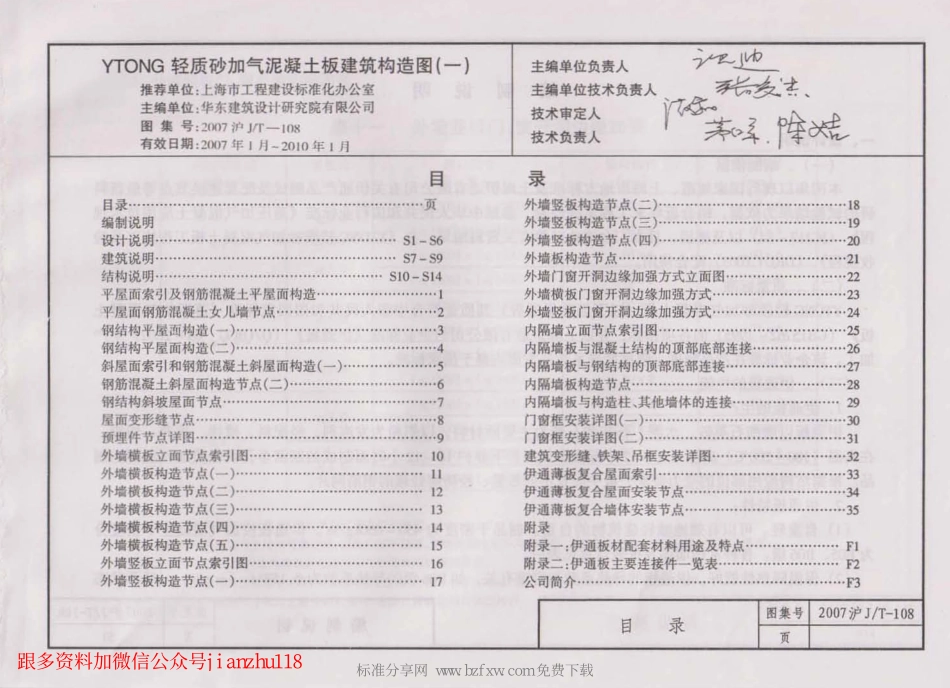 YTONG 轻质砂加气泥凝土板建筑构造图(一)
推荐单位:上海市工程建设标准化办公室
主编单位:华东建筑设计研究院有限公司
图 集 号:2007 沪 J/T—108
有效日期:2007 年 1 月~2010 年 1 月
主编单位负责人
主编单位技术负责人
技术审定人
技术负责人
目 录
目录 页
编制说明
设计说明 S1－S6
建筑说明 S7－S9
结构说明 S10－S14
平屋面索引及钢筋混凝土平屋面构造 1
平屋面钢筋混凝土女儿墙节点 2
钢结构平屋面构造(一) 3
钢结构平屋面构造(二) 4
斜屋面索引和钢筋混凝土斜屋面构造(一) 5
钢筋混凝土斜屋面构造节点(二) 6
钢结构斜坡屋面节点 7
屋面变形缝节点 8
预埋件节点详图 9
外墙横板立面节点索引图 10
外墙横板构造节点(一) 11
外墙横板构造节点(二) 12
外墙横板构造节点(三) 13
外墙横板构造节点(四) 14
外墙横板构造节点(五) 15
外墙竖板立面节点索引图 16
外墙竖板构造节点(一) 17
外墙竖板构造节点(二) 18
外墙竖板构造节点(三) 19
外墙竖板构造节点(四) 20
外墙板构造节点 21
外墙门窗开洞边缘加强方式立面图 22
外墙横板门窗开洞边缘加强方式 23
外墙竖板门窗开洞边缘加强方式 24
内隔墙立面节点索引图 25
内隔墙板与混凝土结构的顶部底部连接 26
内隔墙板与钢结构的顶部底部连接 27
内隔墙板构造节点 28
内隔墙板与构造柱、其他墙体的连接 29
门窗框安装详图(一) 30
门窗框安装详图(二) 31
建筑变形缝、铁架、吊框安装详图 32
伊通薄板复合屋面索引 33
伊通薄板复合屋面安装节点 34
伊通薄板复合墙体安装节点 35
附录
附录一:伊通板材配套材料用途及特点 F1
附录二:伊通板主要连接件一览表 F2
公司简介 F3
目 录
图集号 2007沪J/T-108
页
跟多资料加微信公众号jianzhu118
标准分享网 www.bzfxw.com免费下载